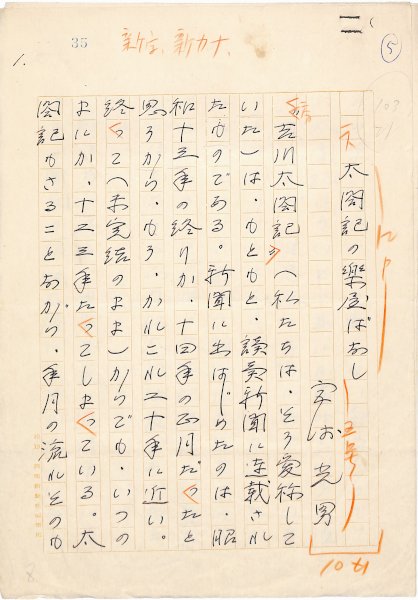 35
新字、新カナ、
二
⑤
1.
太閤記の樂屋ばなし
字野光男
吉川太閤記(私たちは、そう愛称して
いた)は、もともと、讀賣新聞に連載され
たものである。新聞に出はじめたのは、昭
和十三年の終りか、十四年の正月だったと
思うから、もう、かれこれ二十年に近い。
終って(未完結のまま)からでも、いつの
まにか、十二三年たってしまっている。太
閤記もさることながら、年月の流れそのも
8